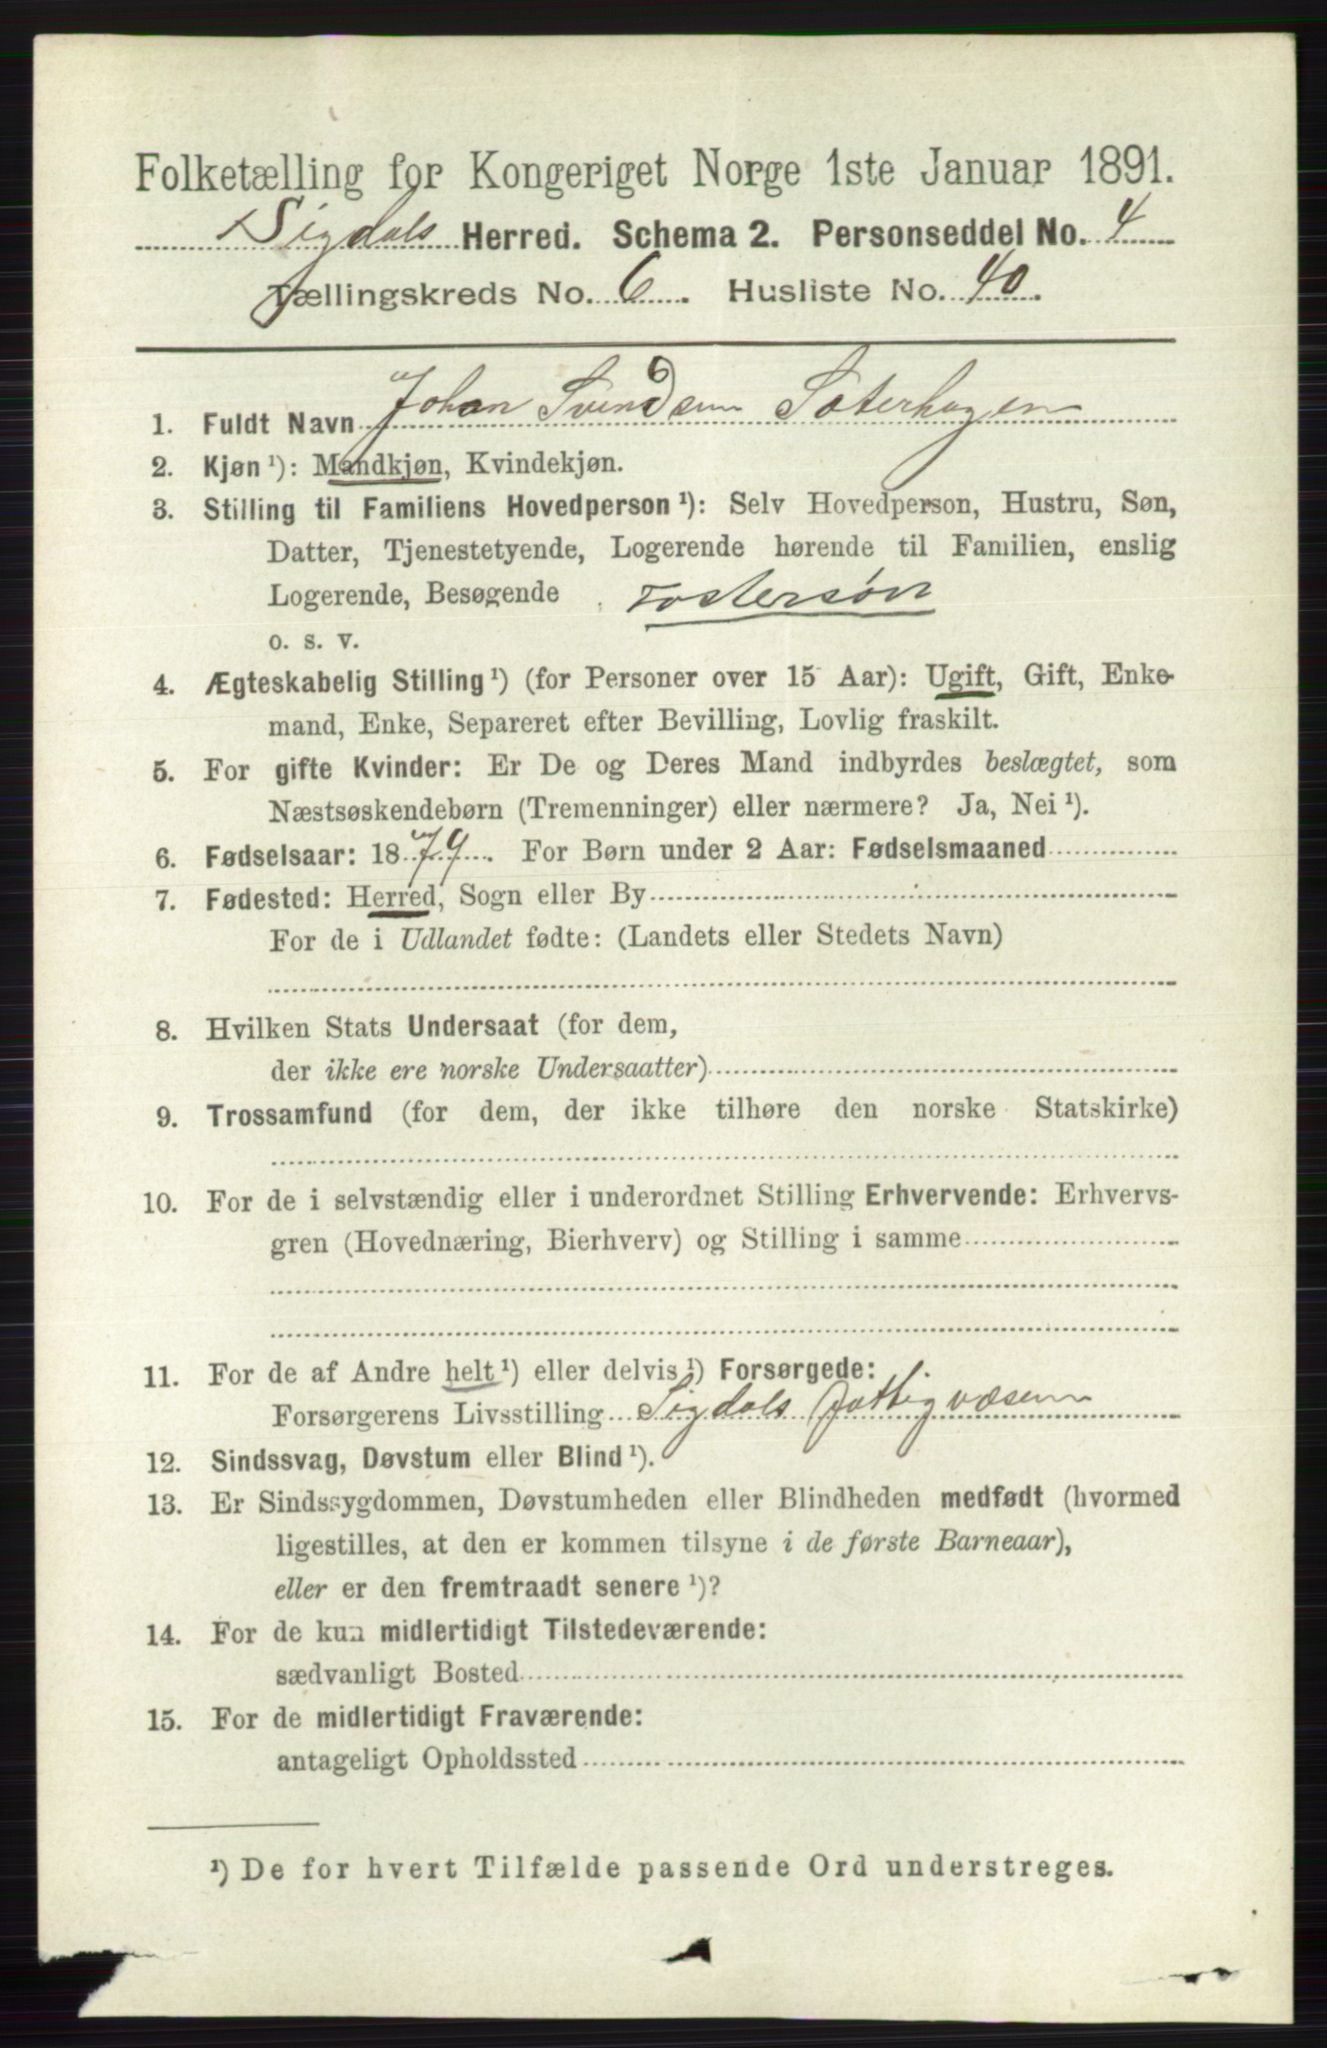 Folketælling for Kongeriget Norge 1ste Januar 1891.
Sigdals Herred. Schema 2. Personseddel No. 4
Tællingskreds No. 6. Husliste No. 40.
1. Fuldt Navn Johan Svendsen Sæterhagen
2. Kjøn ¹): Mandkjøn, Kvindekjøn.
3. Stilling til Familiens Hovedperson ¹): Selv Hovedperson, Hustru, Søn,
Datter, Tjenestetyende, Logerende hørende til Familien, enslig
Logerende, Besøgende Fostersøn
o. s. v.
4. Ægteskabelig Stilling ¹) (for Personer over 15 Aar): Ugift, Gift, Enke-
mand, Enke, Separeret efter Bevilling, Lovlig fraskilt.
5. For gifte Kvinder: Er De og Deres Mand indbyrdes beslægtet, som
Næstsøskendebørn (Tremenninger) eller nærmere? Ja, Nei ¹).
6. Fødselsaar: 1879. For Børn under 2 Aar: Fødselsmaaned
7. Fødested: Herred, Sogn eller By
For de i Udlandet fødte: (Landets eller Stedets Navn)
8. Hvilken Stats Undersaat (for dem,
der ikke ere norske Undersaatter)
9. Trossamfund (for dem, der ikke tilhøre den norske Statskirke)
10. For de i selvstændig eller i underordnet Stilling Erhvervende: Erhvervs-
gren (Hovednæring, Bierhverv) og Stilling i samme
11. For de af Andre helt ¹) eller delvis ¹) Forsørgede:
Forsørgerens Livsstilling Sigdals Fattigvæsen
12. Sindssvag, Døvstum eller Blind ¹).
13. Er Sindssygdommen, Døvstumheden eller Blindheden medfødt (hvormed
ligestilles, at den er kommen tilsyne i de første Barneaar),
eller er den fremtraadt senere ¹)?
14. For de kun midlertidigt Tilstedeværende:
sædvanligt Bosted
15. For de midlertidigt Fraværende:
antageligt Opholdssted
¹) De for hvert Tilfælde passende Ord understreges.